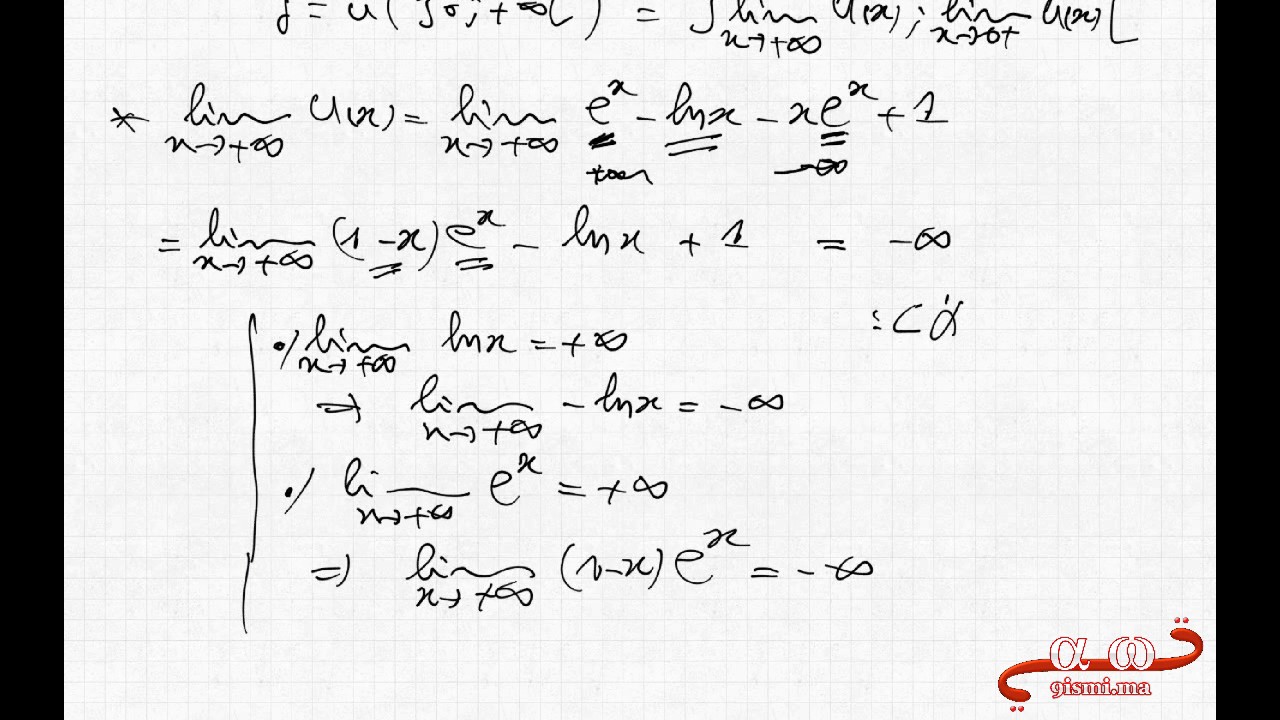 J = U(]0; +∞[) = ]lim x→+∞ U(x); lim x→0+ U(x)[
* lim x→+∞ U(x) = lim x→+∞ e^x - ln x - x e^x + 1
+∞ -∞
= lim x→+∞ (1 - x) e^x - ln x + 1 = -∞
لأن :
•/ lim x→+∞ ln x = +∞
⇒ lim x→+∞ - ln x = -∞
•/ lim x→+∞ e^x = +∞
⇒ lim x→+∞ (1-x) e^x = -∞
α ω
9ismi.ma